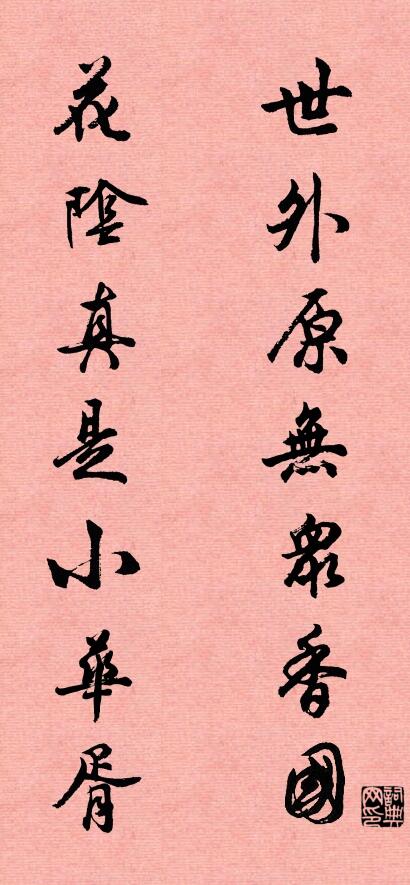 世外原無眾香國
花陰真是小華胥
詞典網印